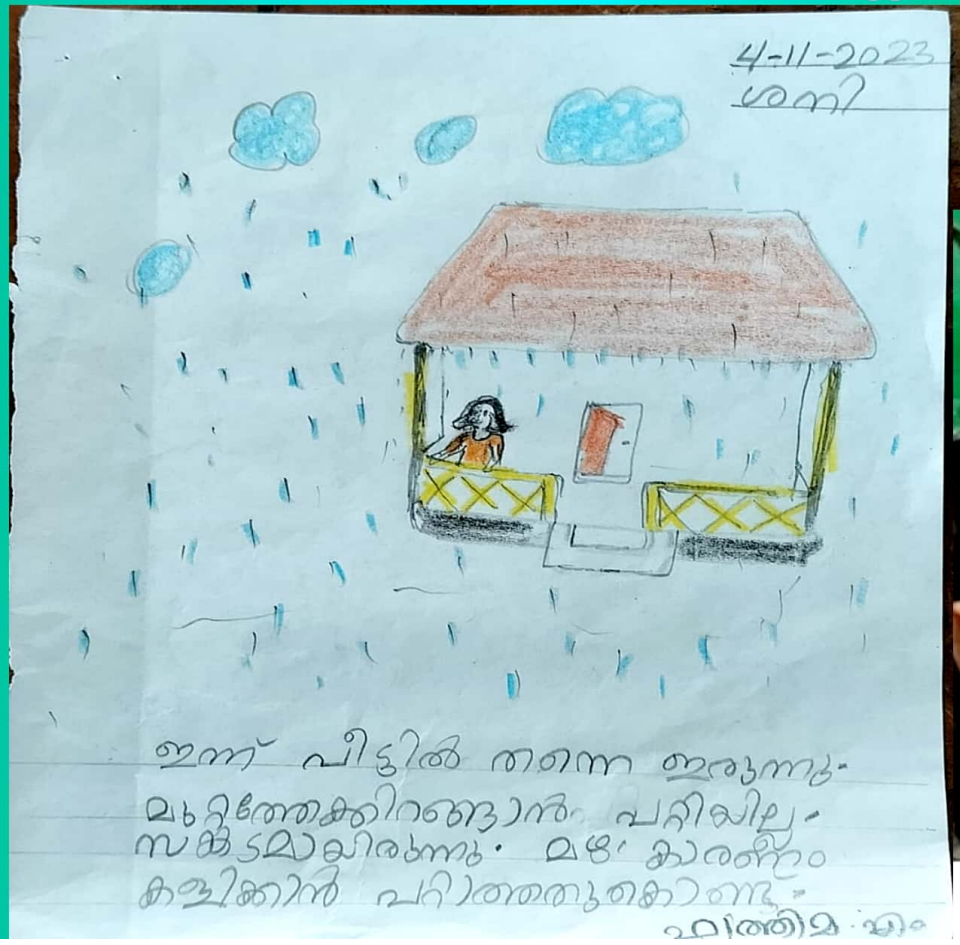 4-11-2023
ശനി
ഇന്ന് വീട്ടിൽ തന്നെ ഇരുന്നു.
മുറ്റത്തേക്കിറങ്ങാൻ പറ്റിയില്ല.
സങ്കടമായിരുന്നു. മഴ കാരണം
കളിക്കാൻ പറ്റാത്തതുകൊണ്ടു.
ഫാത്തിമ. എം